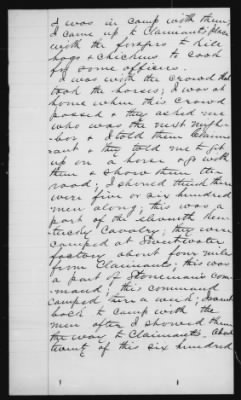 I was in camp with them;
I came up to Claimant's place
with the foragers to kill
hogs & chickens to cook
for some officers.
I was with the crowd that
took the horses; I was at
home when this crowd
passed & they asked me
who was the next neigh-
bor & I told them Claim-
ant & they told me to get
up on a horse & go with
them & show them the
road; I showed them; there
were five or six hundred
men along; this was a
part of the eleventh Ken-
tucky Cavalry; they were
camped at Sweetwater
factory about four miles
from Claimants; this was
a part of Stoneman's com-
mand; this command
camped there a week; I went
back to camp with the
men after I showed them
the way to Claimant's. About
twenty of this six hundred